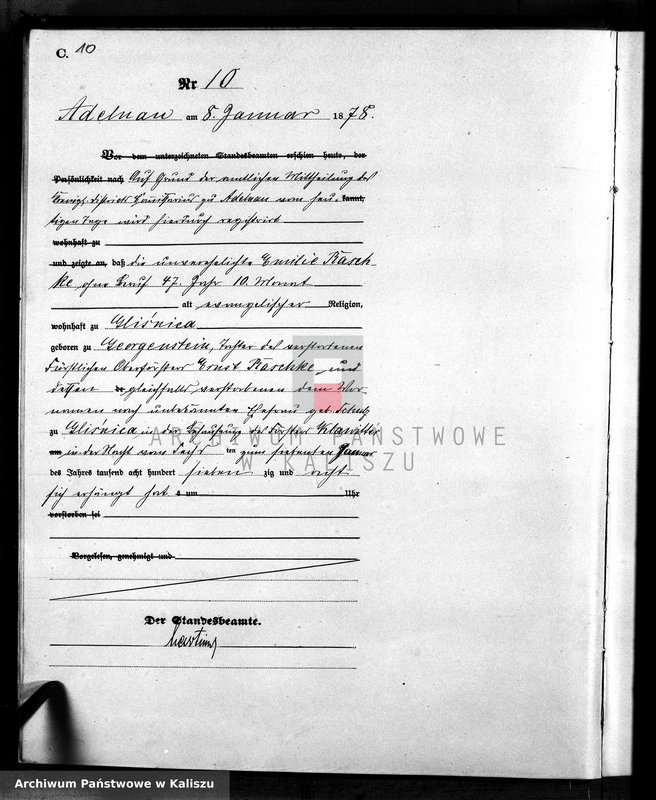 C. 10
Nr 10
Adelnau am 8. Januar 1878.
Vor dem unterzeichneten Standesbeamten erschien heute, der
Persönlichkeit nach Auf Grund der amtlichen Mittheilung des
Königl. Districts Commissarius zu Adelnau vom heu- kannt,
tigen Tage wird hierdurch registrirt
wohnhaft zu
und zeigte an, daß die unverehelichte Emilie Raschke
ke ohne Beruf 47. Jahr 10. Monat
alt evangelischer Religion,
wohnhaft zu Gliśnica
geboren zu Georgenstein, Tochter des verstorbenen
Fürstlichen Oberförsters Ernst Raschke und
dessen gleichfalls verstorbenen dem Vor-
namen nach unbekannten Ehefrau geb. Schulz
zu Gliśnica in der Behausung des Förster Klawitter
am in der Nacht vom sechs ten zum siebenten Januar
des Jahres tausend acht hundert sieben zig und acht
sich erhängt hat um Uhr
verstorben sei
Vorgelesen, genehmigt und
Der Standesbeamte.
ARCHIWUM PAŃSTWOWE
W KALISZU
Archiwum Państwowe w Kaliszu